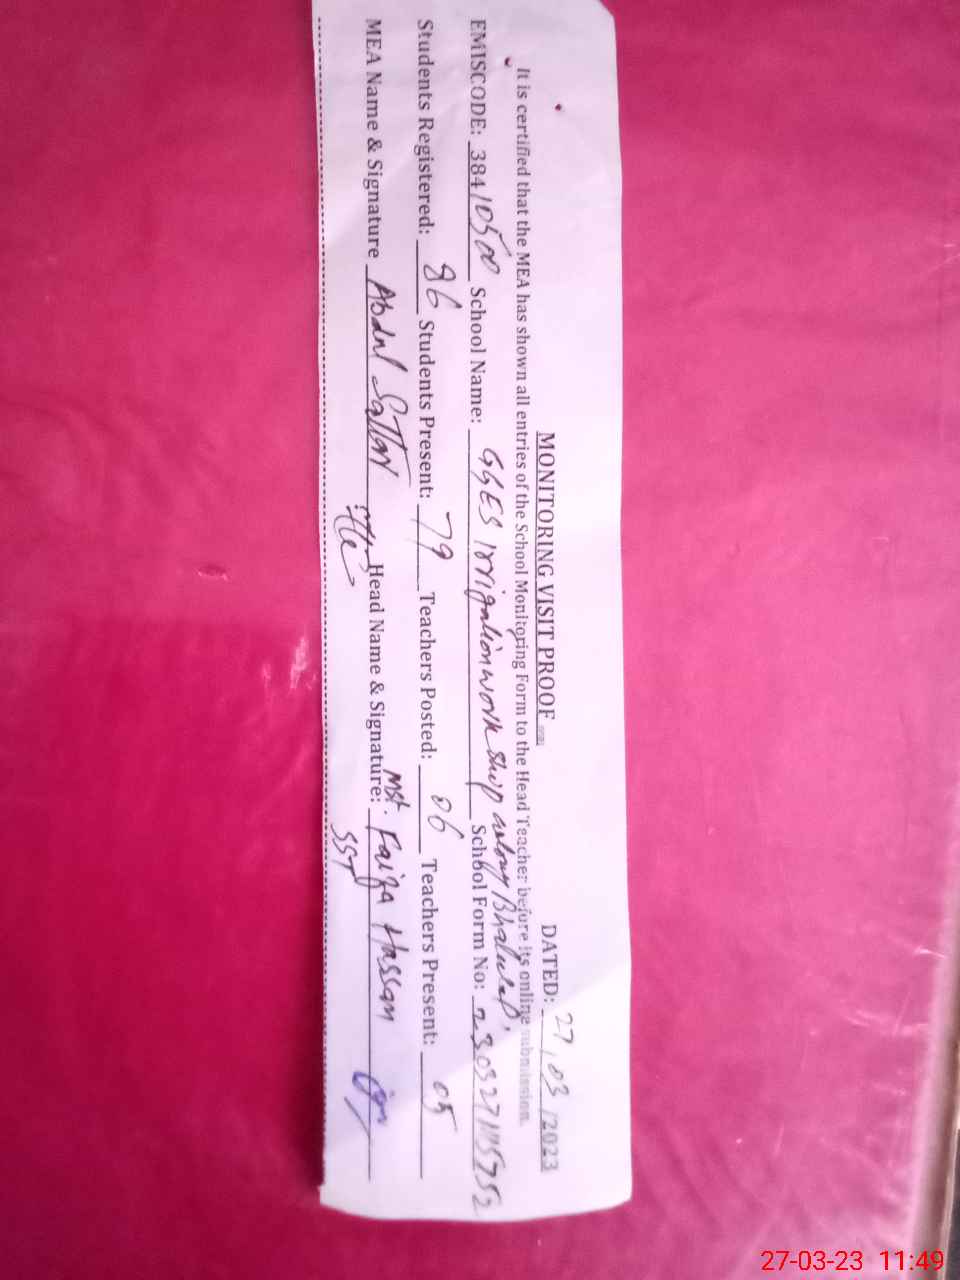 MONITORING VISIT PROOF
DATED: 27/03/2023
It is certified that the MEA has shown all entries of the School Monitoring Form to the Head Teacher before its online submission.
EMISCODE: 38410500 School Name: GGES Irrigation work shop colony Bhalwal. School Form No: 230327115752
Students Registered: 86 Students Present: 79 Teachers Posted: 06 Teachers Present: 05
MEA Name & Signature Abdul Sattar Head Name & Signature: Mst. Faiza Hassan
SST
27-03-23 11:49